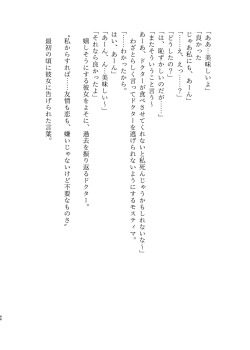 「ああ、美味しいよ」
「良かった
じゃあ私にも、あーん」
「……え、えっ……？」
「どうしたの？」
「は、恥ずかしいのだが……」
「またそういうこと言う〜
あーあ、ドクターが食べさせてくれないと私死んじゃうかもしれないな〜」
わざとらしく言ってドクターを逃げられないようにするモスティマ。
「……わかったから。
はい、あーん」
「あーん、ん〜美味しい〜」
「それなら良かったよ」
嬉しそうにする彼女をよそに、過去を振り返るドクター。
“私からすれば……友情も恋も、嫌いじゃないけど不要なものさ”
最初の頃に彼女に告げられた言葉。